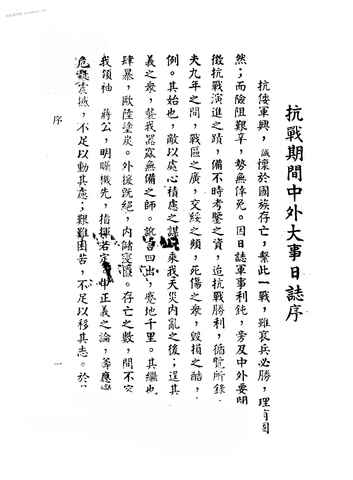 抗戰期間中外大事日誌序
抗倭軍興，誠懍於國族存亡，繫此一戰，雖哀兵必勝，理有固
然；而險阻艱辛，勢無倖免。因日誌軍事利鈍，旁及中外要聞
徵抗戰演進之蹟，備不時考鑒之資，迨抗戰勝利，循覽所錄，
夫九年之間，戰區之廣，交綏之頻，死傷之衆，毀損之酷，
例。其始也，敵以處心積慮之謀，乘我天災內亂之後；逞其
義之衆，襲我器窳無備之師。四出，蹙地千里。其繼也
肆暴，歐陸塗炭。外援既絕，內儲寖匱。存亡之數，間不容
我領袖 蔣公，明矚機先，指揮若定，中正義之論，籌應
危難震撼，不足以動其慮；艱難困苦，不足以移其志。於
序
一